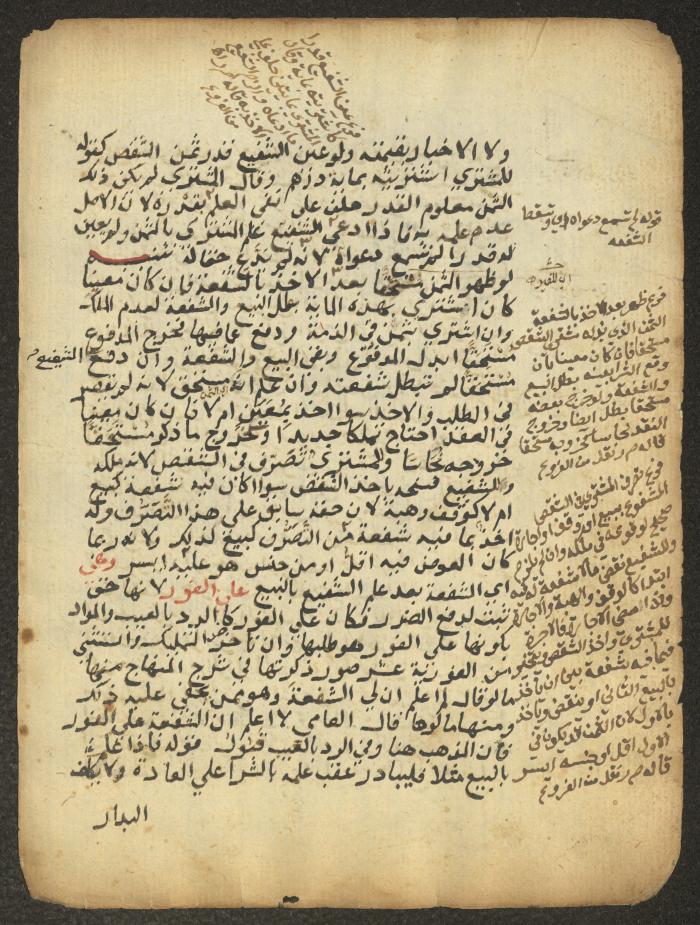 ولا الاخبار بقيمته ولو عين الشفيع قدر ثمن الشقص كقوله
للمشتري اشتريته بماية درهم وقال المشتري لم يكن ذلك
الثمن معلوم القدر حلف على نفي العلم بقدره لان الاصل
عدم علمه به فاذا ادعى الشفيع علم المشتري بالثمن ولم يعين
له قدرا لم تسمع دعواه لانه لم يدع حقا له
لو ظهر الثمن مستحقا بعد الاخذ بالشفعة فان كان معينا
كان اشترى بهذه الماية بطل البيع والشفعة لعدم الملك
وان اشترى بثمن في الذمة ودفع عما فيها فخرج المدفوع
مستحقا ابدل المدفوع وبقي البيع والشفعة وان دفع الشفيع
مستحقا لم تبطل شفعته وان علم انه مستحق لانه لم يقصر
في الطلب والاخذ سوا اخذ بمعين ام لا فان كان معينا
في العقد احتاج تملكا جديدا وكخروج ما ذكر مستحقا
خروجه نحاسا وللمشتري تصرف في الشقص لانه ملكه
وللشفيع فسخه باخذ الشقص سوا كان فيه شفعة كبيع
ام لا كوقف وهبة لان حقه سابق على هذا التصرف وله
اخذ بما فيه شفعة من التصرف كبيع لذلك ولانه ربما
كان العوض فيه اقل او من جنس هو عليه ايسر وهي
اي الشفعة بعد علم الشفيع بالبيع على الفور لانها حق
ثبت لدفع الضرر فكان على الفور كالرد بالعيب والمراد
بكونها على الفور هو طلبها وان تاخر التمليك واستثني
من الفورية عشر صور ذكرتها في شرح المنهاج منها
ما لو قال لم اعلم ان لي الشفعة وهو ممن يخفى عليه ذلك
ومنها ما لو قال العامي لا اعلم ان الشفعة على الفور
فان المذهب هنا وفي الرد بالعيب قبول قوله فاذا علم
بالبيع مثلا فليبادر عقب علمه بالشرا على العادة ولا يكلف
البدار
قوله لم تسمع دعواه اي وتسقط
الشفعة
فرع ظهر بعد الاخذ بالشفعة
الثمن الذي بذله مشتري الشقص
مستحقا فان كان معينا بان
وقع الشرا بعينه بطل البيع
والشفعة ولو خرج بعضه
مستحقا بطل ايضا وخروج
النقد نحاسا كخروجه مستحقا
قاله م ر نقل من الفروع
فرع تصرف المشتري في الشقص
المشفوع ببيع او وقف او اجارة
صحيح لوقوعه في ملكه وان لم يلزم
وللشفيع نقض ما لا شفعة فيه
ابتدا كالوقف والهبة والاجارة
واذا امضى الاجارة فالاجرة
للمشتري واخذ الشقص ويتخير
فيما فيه شفعة بين ان ياخذ
بالبيع الثاني او ينقض وياخذ
بالاول لان الثمن قد يكون في
الاول اقل او جنسه ايسر
قاله م ر نقل من الفروع